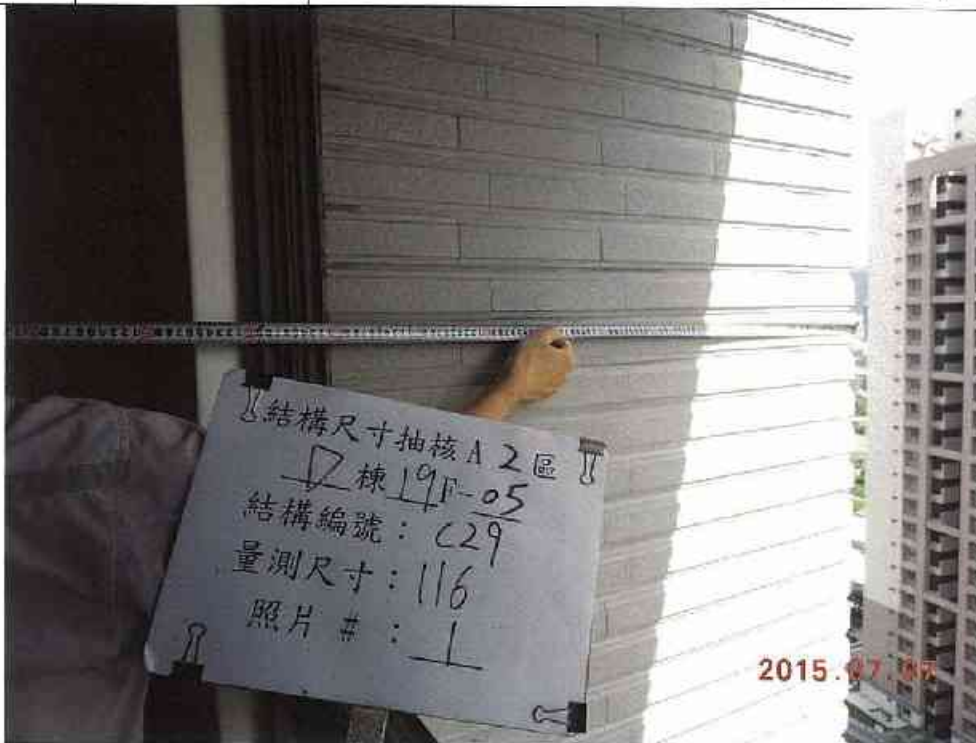 結構尺寸抽核A 2區
D棟19F-05
結構編號：C29
量測尺寸：116
照片 #：1
2015.07.07